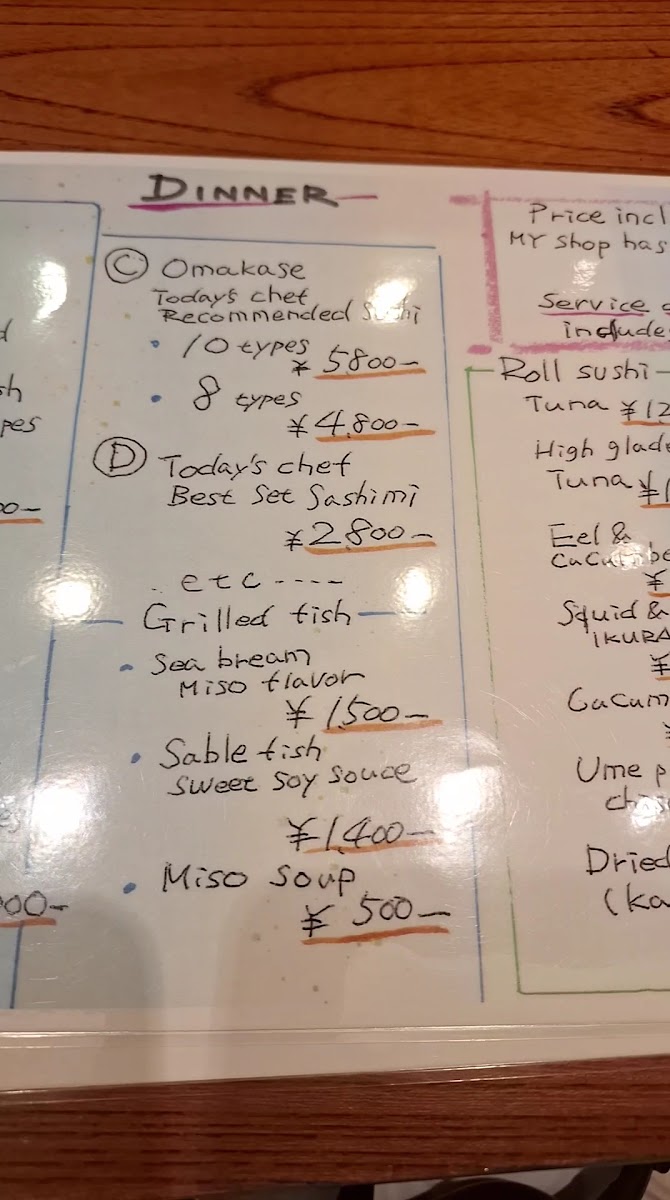 DINNER
Ⓒ Omakase
Today's chef
Recommended Sushi
• 10 types
¥ 5800-
• 8 types
¥4,800-
Ⓓ Today's chef
Best Set Sashimi
¥2,800-
.. etc ----
Grilled fish
• Sea bream
Miso flavor
¥ 1,500-
• Sable fish
Sweet Soy Souce
¥1,400-
• Miso Soup
¥ 500-
Price incl
MY shop has
Service
include
Roll sushi
Tuna ¥12
High glade
Tuna ¥1
Eel &
¥
Squid &
IKURA
¥
Cucum
Ume p
Dried
(ka
pes
00-